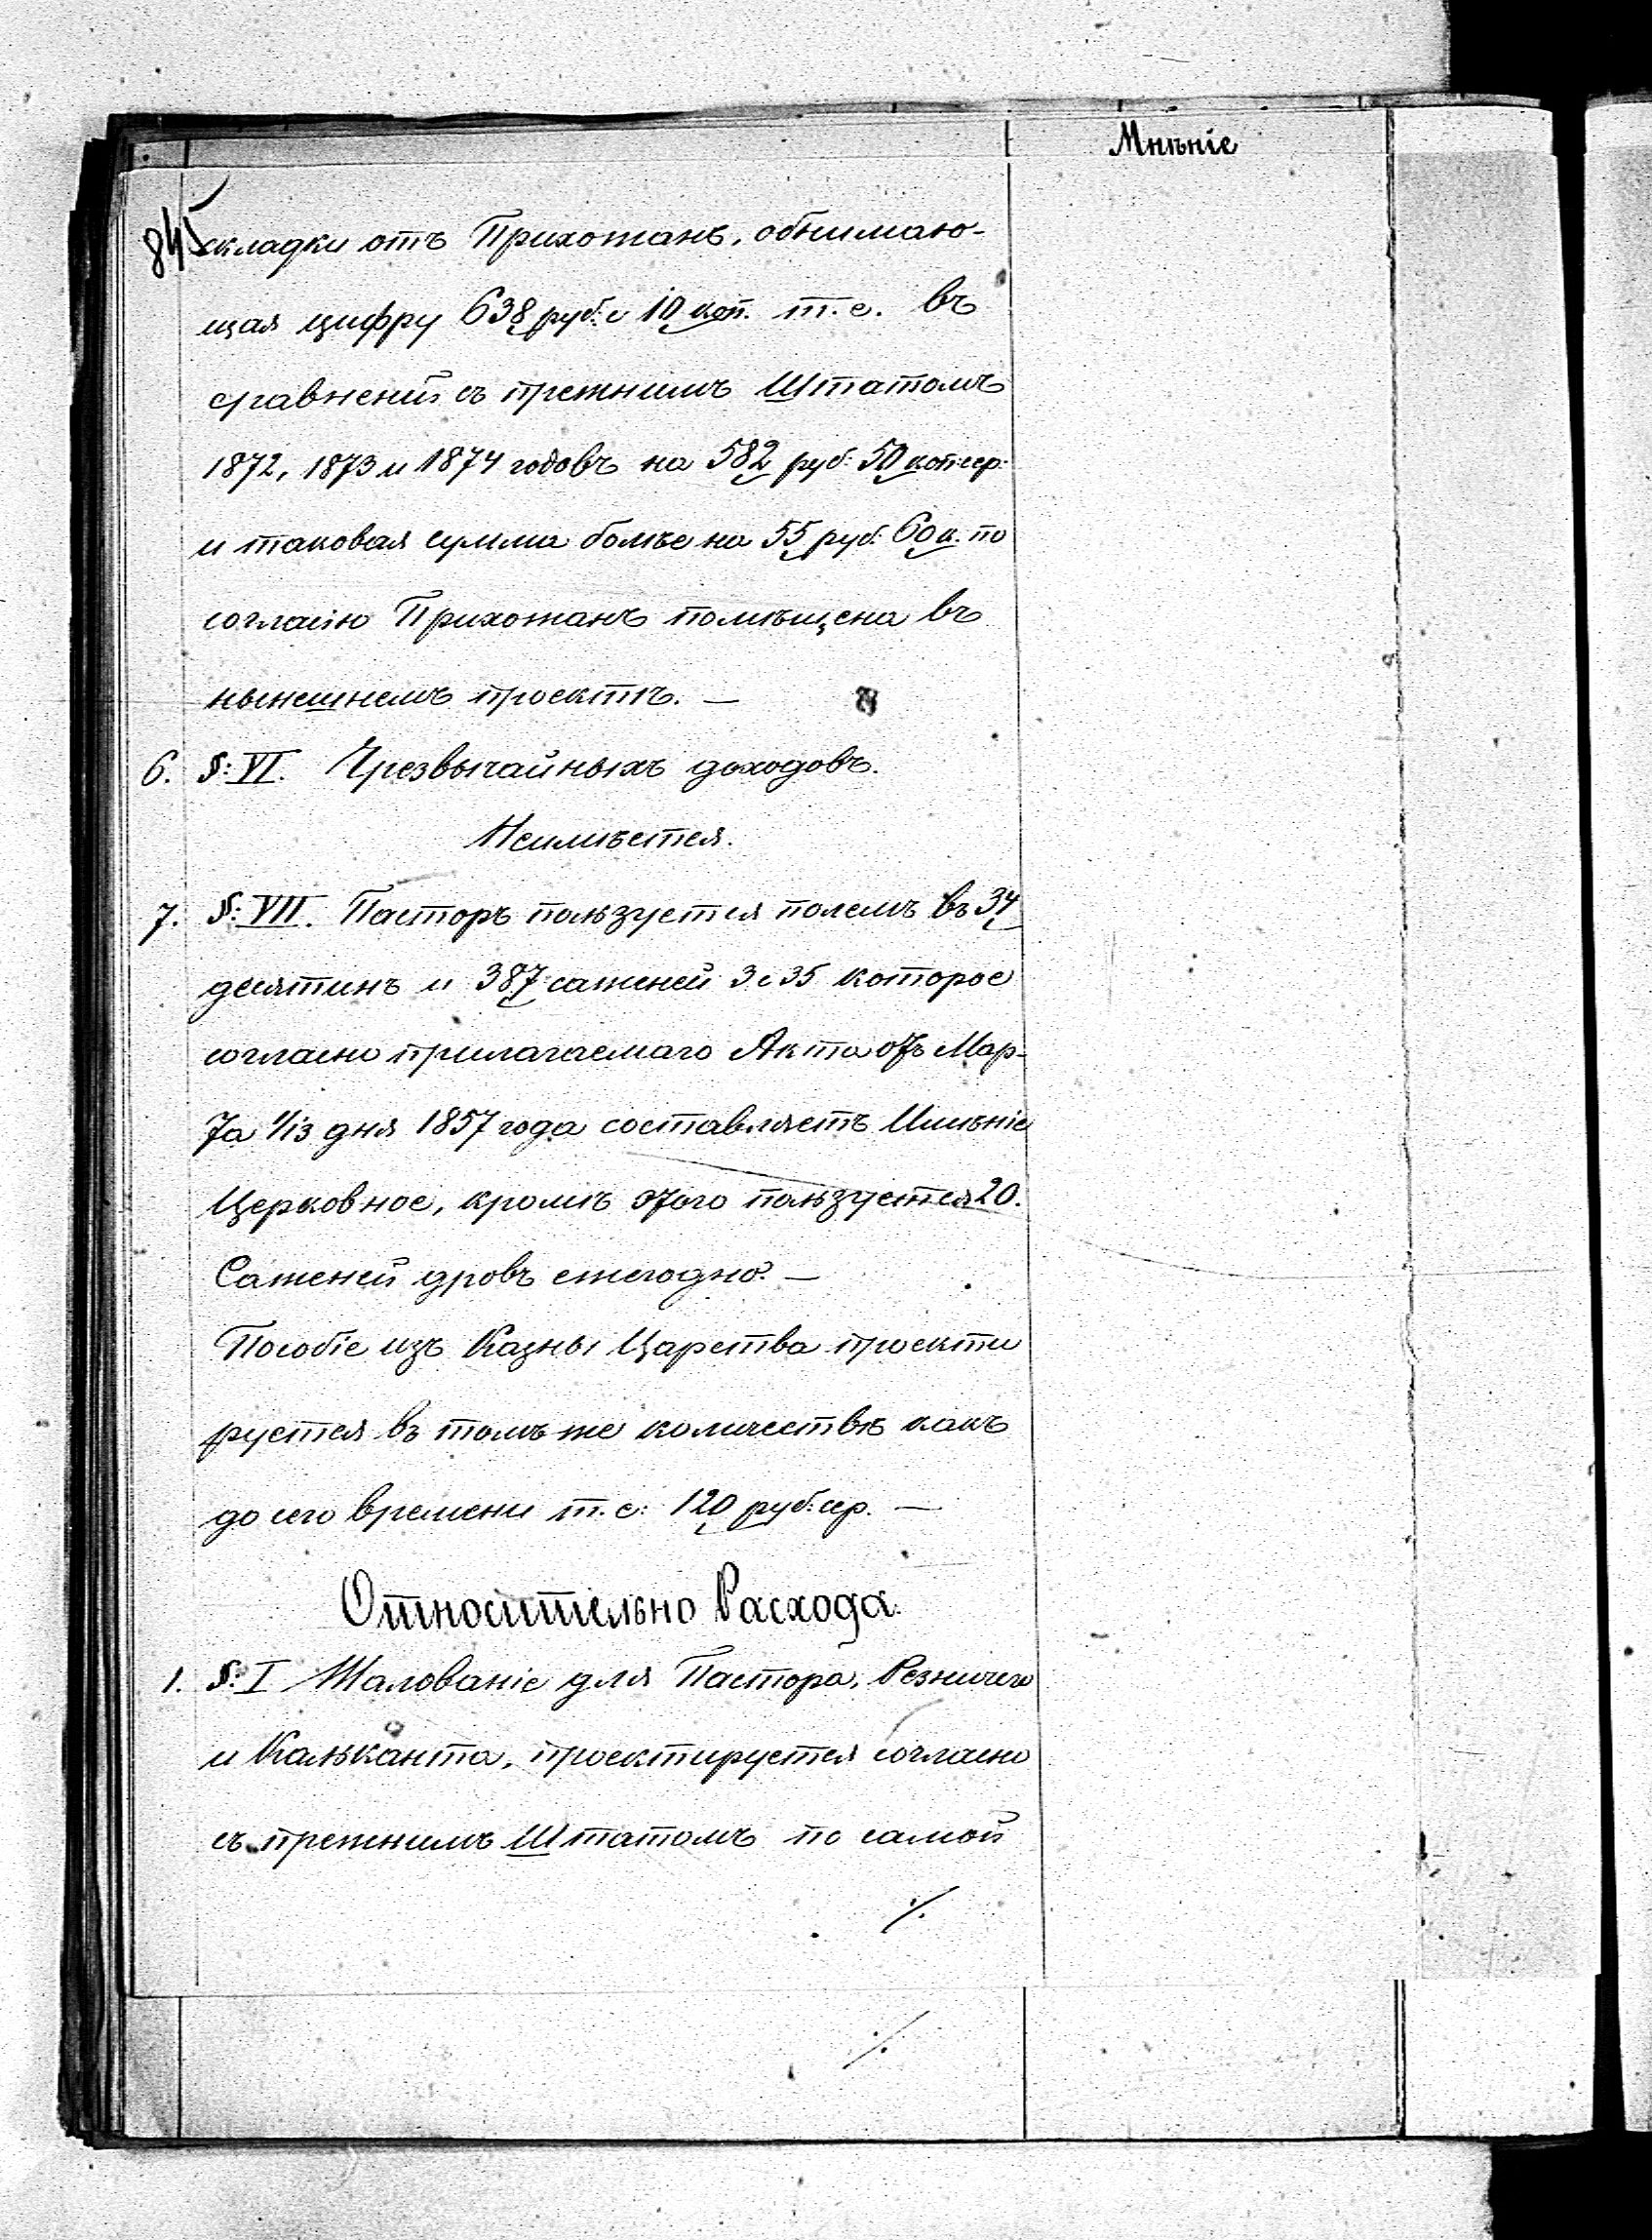 Мнѣніе
845
складки отъ Прихожанъ, обнимаю-
щая цифру 638 руб: с 10 коп. т. е. въ
сравненіи съ прежнимъ Штатомъ
1872, 1873 и 1874 годовъ на 582 руб: 50 коп: сер:
и таковая сумма болѣе на 55 руб: 60 к. по
согласію Прихожанъ помѣщена въ
нынешнемъ проектѣ. —
6. §: VI. Чрезвычайныхъ доходовъ.
Неимѣется.
7. §: VII. Пасторъ пользуется полемъ въ 34
десятинъ и 387 саженей 3 с 35 которое
согласно прилагаемаго Акта отъ Мар-
та 1/13 дня 1857 года составляетъ Имѣніе
Церковное, кромѣ этого пользуется 20.
Саженей дровъ ежегодно. —
Пособіе изъ Казны Царства проекти
руется въ томъ же количествѣ какъ
до сего времени т. е: 120 руб: сер. —
Относительно Расхода.
1. §: I Жалованіе для Пастора, Резничего
и Кальканта, проектируется согласно
съ прежнимъ Штатомъ по самой
./.
./.